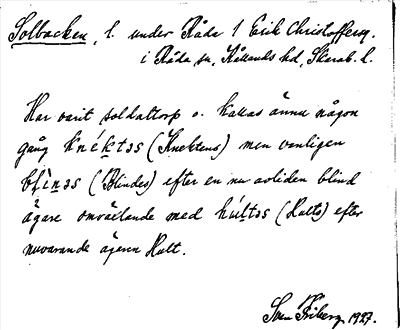 Solbacken, l. under Råda 1 Erik Christoffersg.
i Råda sn, Kållands hd, Skarab. l.
Har varit soldattorp o. kallas ännu någon
gång knéktəs (Knektens) men vanligen
blìnəs (Blindes) efter en nu avliden blind
ägare omväxlande med húltəs (Hults) efter
nuvarande ägaren Hult.
Sven Friberg 1927.